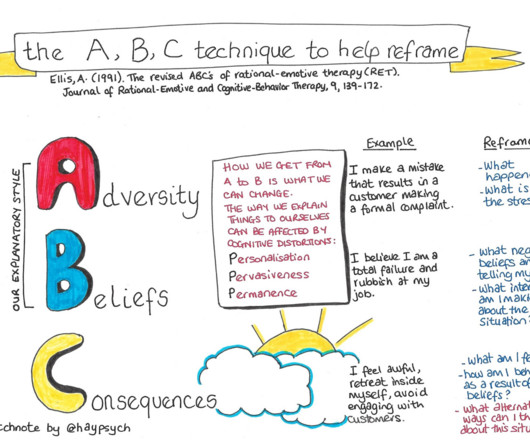 the A, B, C technique to help reframe
Ellis, A. (1991). The revised ABC's of rational-emotive therapy (RET).
Journal of Rational-Emotive and Cognitive-Behavior Therapy, 9, 139-172.
OUR EXPLANATORY STYLE
Adversity
Beliefs
Consequences
HOW WE GET FROM
A to B IS WHAT WE
CAN CHANGE.
THE WAY WE EXPLAIN
THINGS TO OURSELVES
CAN BE AFFECTED BY
COGNITIVE DISTORTIONS:
Personalisation
Pervasiveness
Permanence
Example
I make a mistake
that results in a
customer making
a formal complaint.
I believe I am a
total failure and
rubbish at my
job.
I feel awful,
retreat inside
myself, avoid
engaging with
customers.
Reframe
-What
happen
-What is
the stres
-What neg
beliefs a
telling my
-What inte
am I maki
about the
situation?
-what am I fe
-how am I beh
as a result of
beliefs?
-What alternat
ways can I th
about this sit
chnote by @haypsych